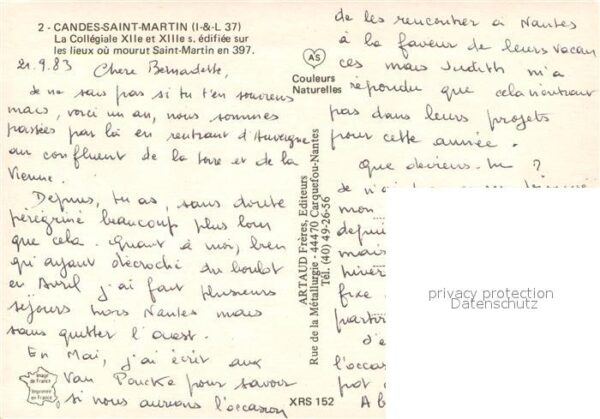 2 - CANDES-SAINT-MARTIN (I-&-L 37)
La Collégiale XIIe et XIIIe s. édifiée sur
les lieux où mourut Saint-Martin en 397.
21.9.83 Chère Bernadette,
Je ne sais pas si tu t'en souviens
mais, voici un an, nous sommes
passées par là en rentrant d'Auvergne
au confluent de la Loire et de la
Vienne.
Depuis, tu as, sans doute
pérégriné beaucoup plus loin
que cela. Quant à moi, bien
qu'ayant décroché du boulot
en Avril j'ai fait plusieurs
séjours hors Nantes mais
sans quitter l'ouest.
En Mai, j'ai écrit aux
Van Poucke pour savoir
si nous aurions l'occasion
AS
Couleurs
Naturelles
ARTAUD Frères, Editeurs
Rue de la Métallurgie - 44470 Carquefou-Nantes
Tél. (40) 49-26-56
XRS 152
Image de France
Imprimée en France
de les rencontrer à Nantes
à la faveur de leurs vacan
ces mais Judith m'a
répondu que cela n'entrait
pas dans leurs projets
pour cette année.
Que deviens-tu ?
Je n'ai
mon
depuis
mais
hiver
fixe
partir
d'é
l'occas
pot
A b
privacy protection
Datenschutz